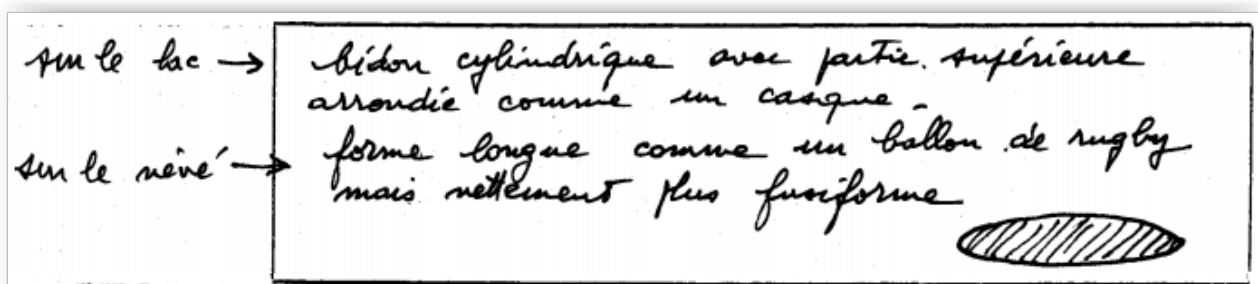 sur le lac → bidon cylindrique avec partie supérieure
arrondie comme un casque -
sur le névé → forme longue comme un ballon de rugby
mais nettement plus fusiforme